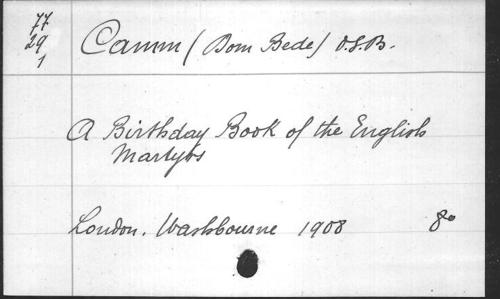 77
29
1
Camm (Dom Bede) O.S.B.
A Birthday Book of the English
Martyrs
London. Washbourne 1908 8°